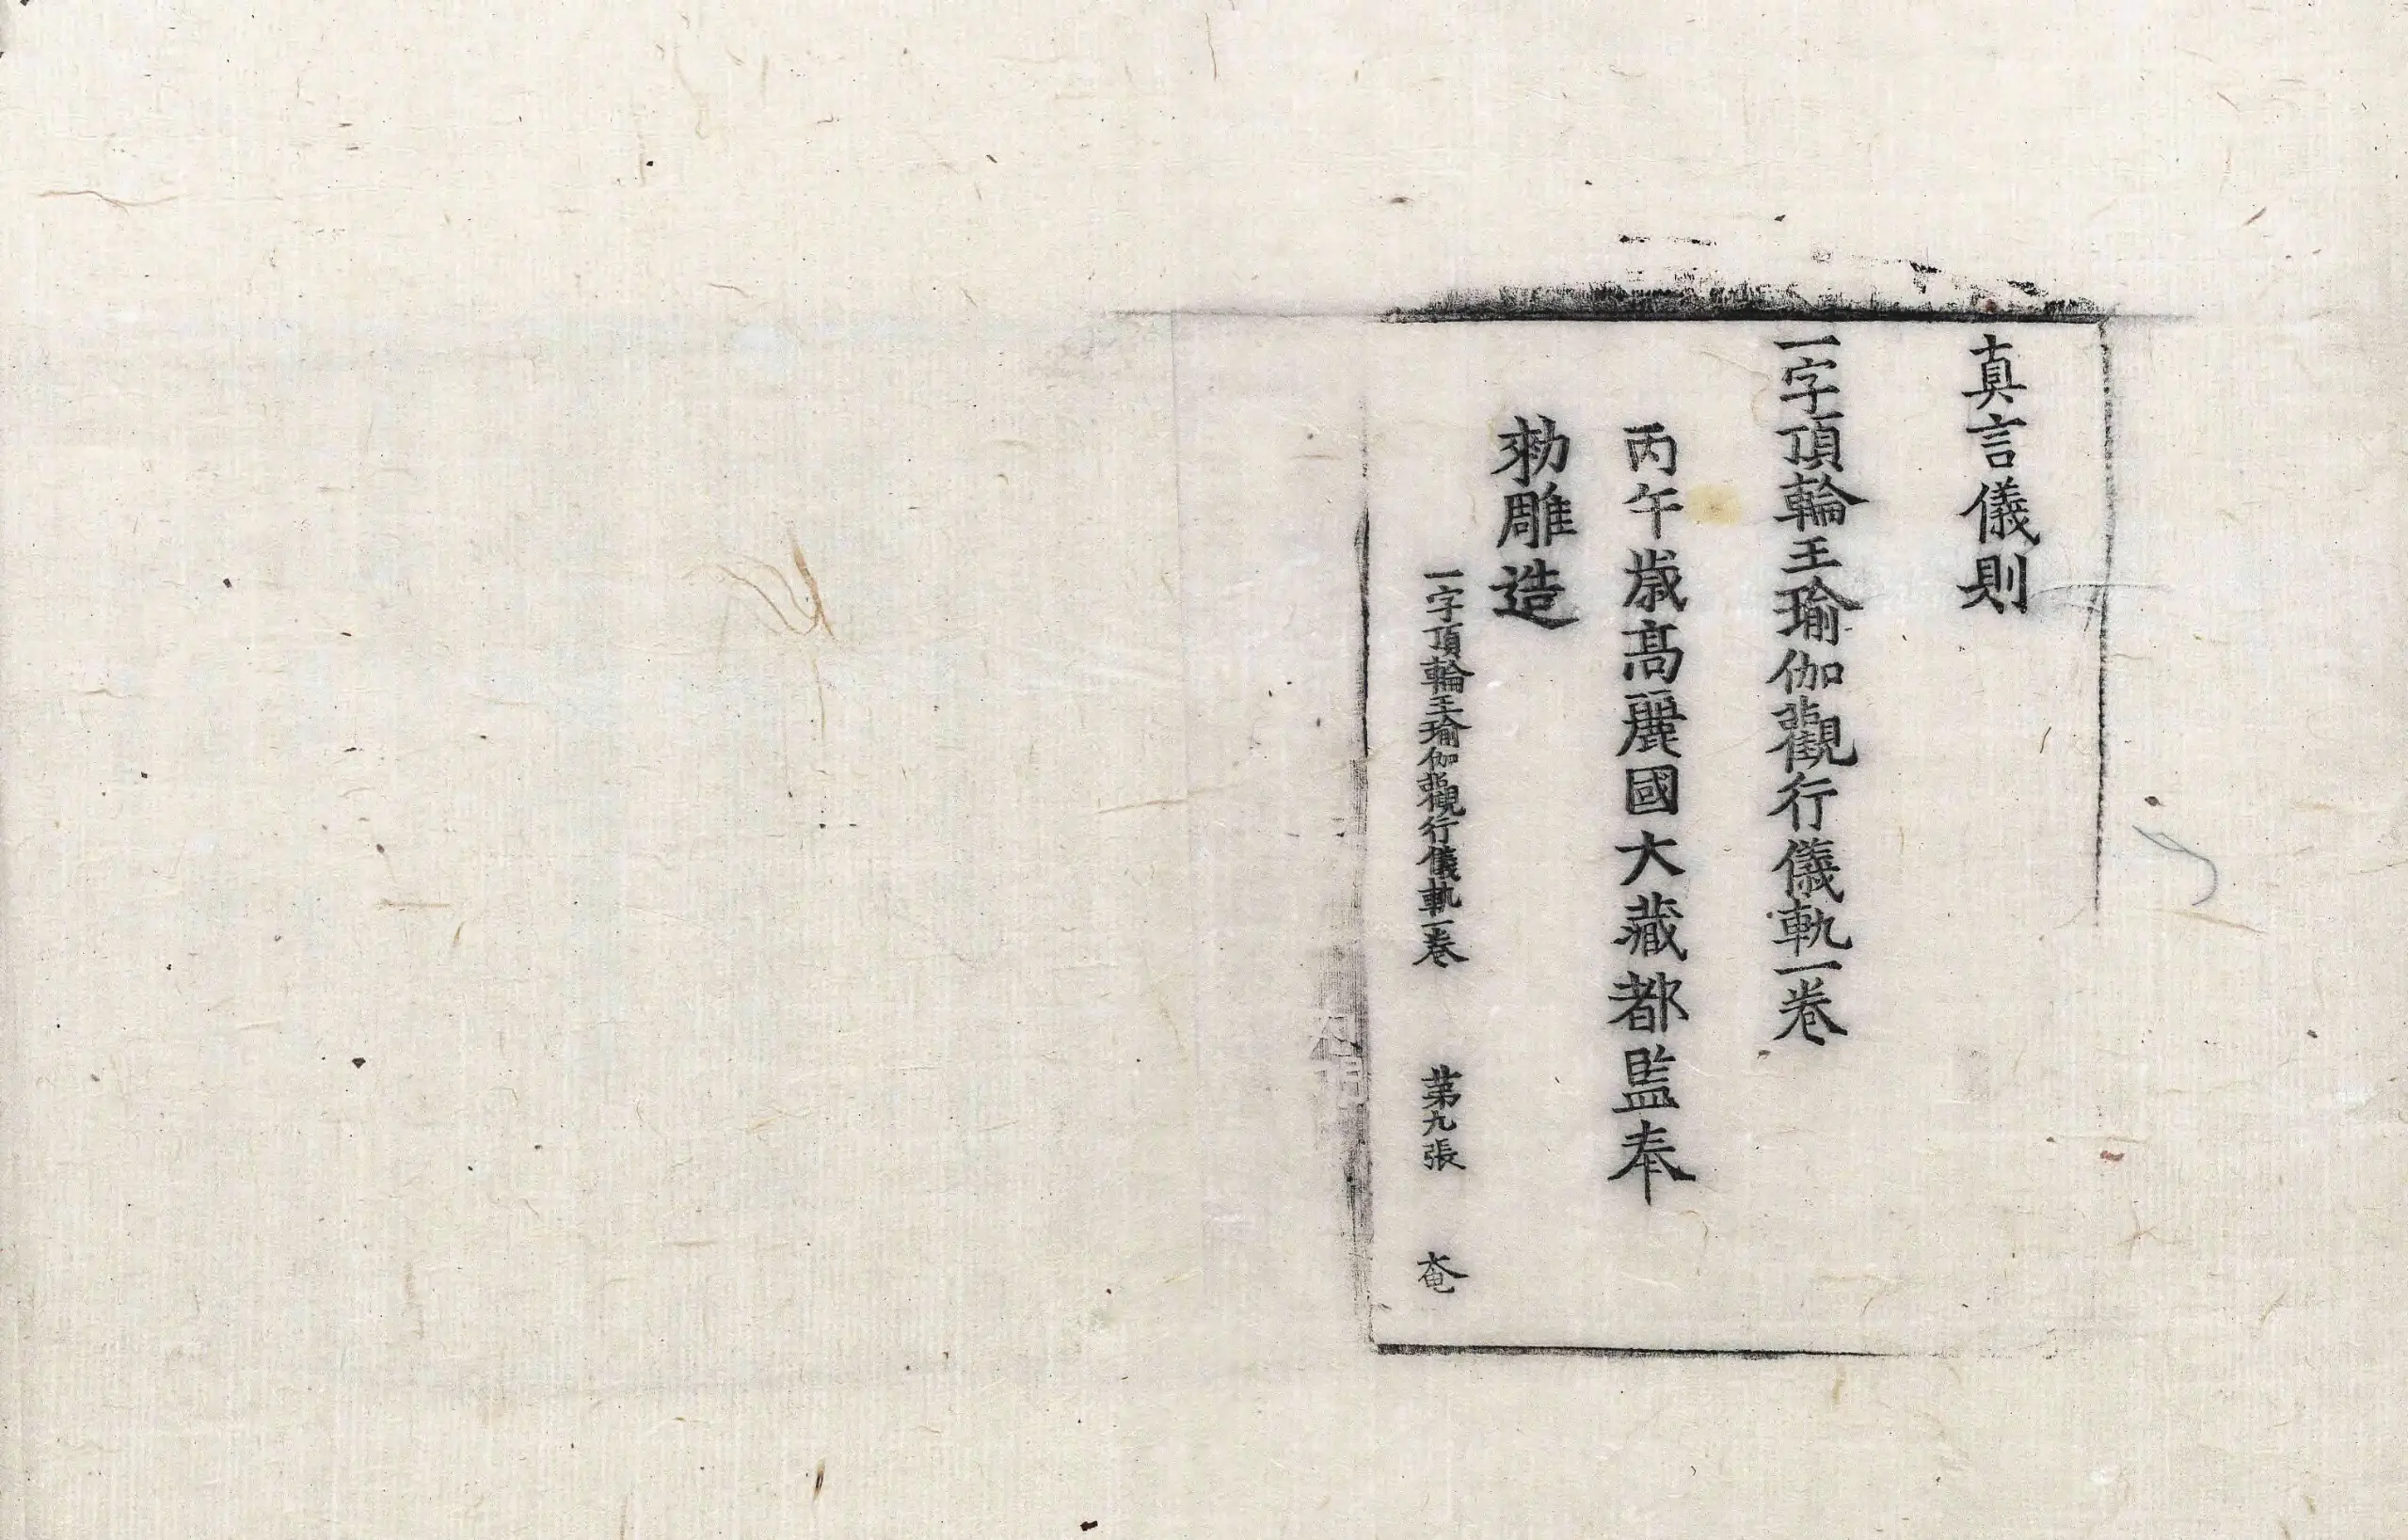 真言儀則
一字頂輪王瑜伽觀行儀軌一卷
丙午歲高麗國大藏都監奉
勑雕造
一字頂輪王瑜伽觀行儀軌一卷 第九張 奄